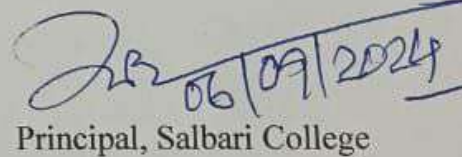 06/09/2024
Principal, Salbari College